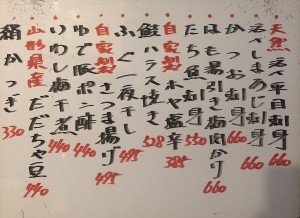 天然 活〆平目刺身 660
活〆しまあじ刺身 660
かつお刺身 660
はも湯引き梅肉かけ 660
だこ刺身 550
自家製 ホヤ塩辛 385
鮭ハラス焼き 528
ふぐ一夜干し 495
自家製 さつま揚げ 495
ゆで豚ポン酢 440
いわし梅干煮 440
山形県産 だだちゃ豆 440
絹かつぎ 330